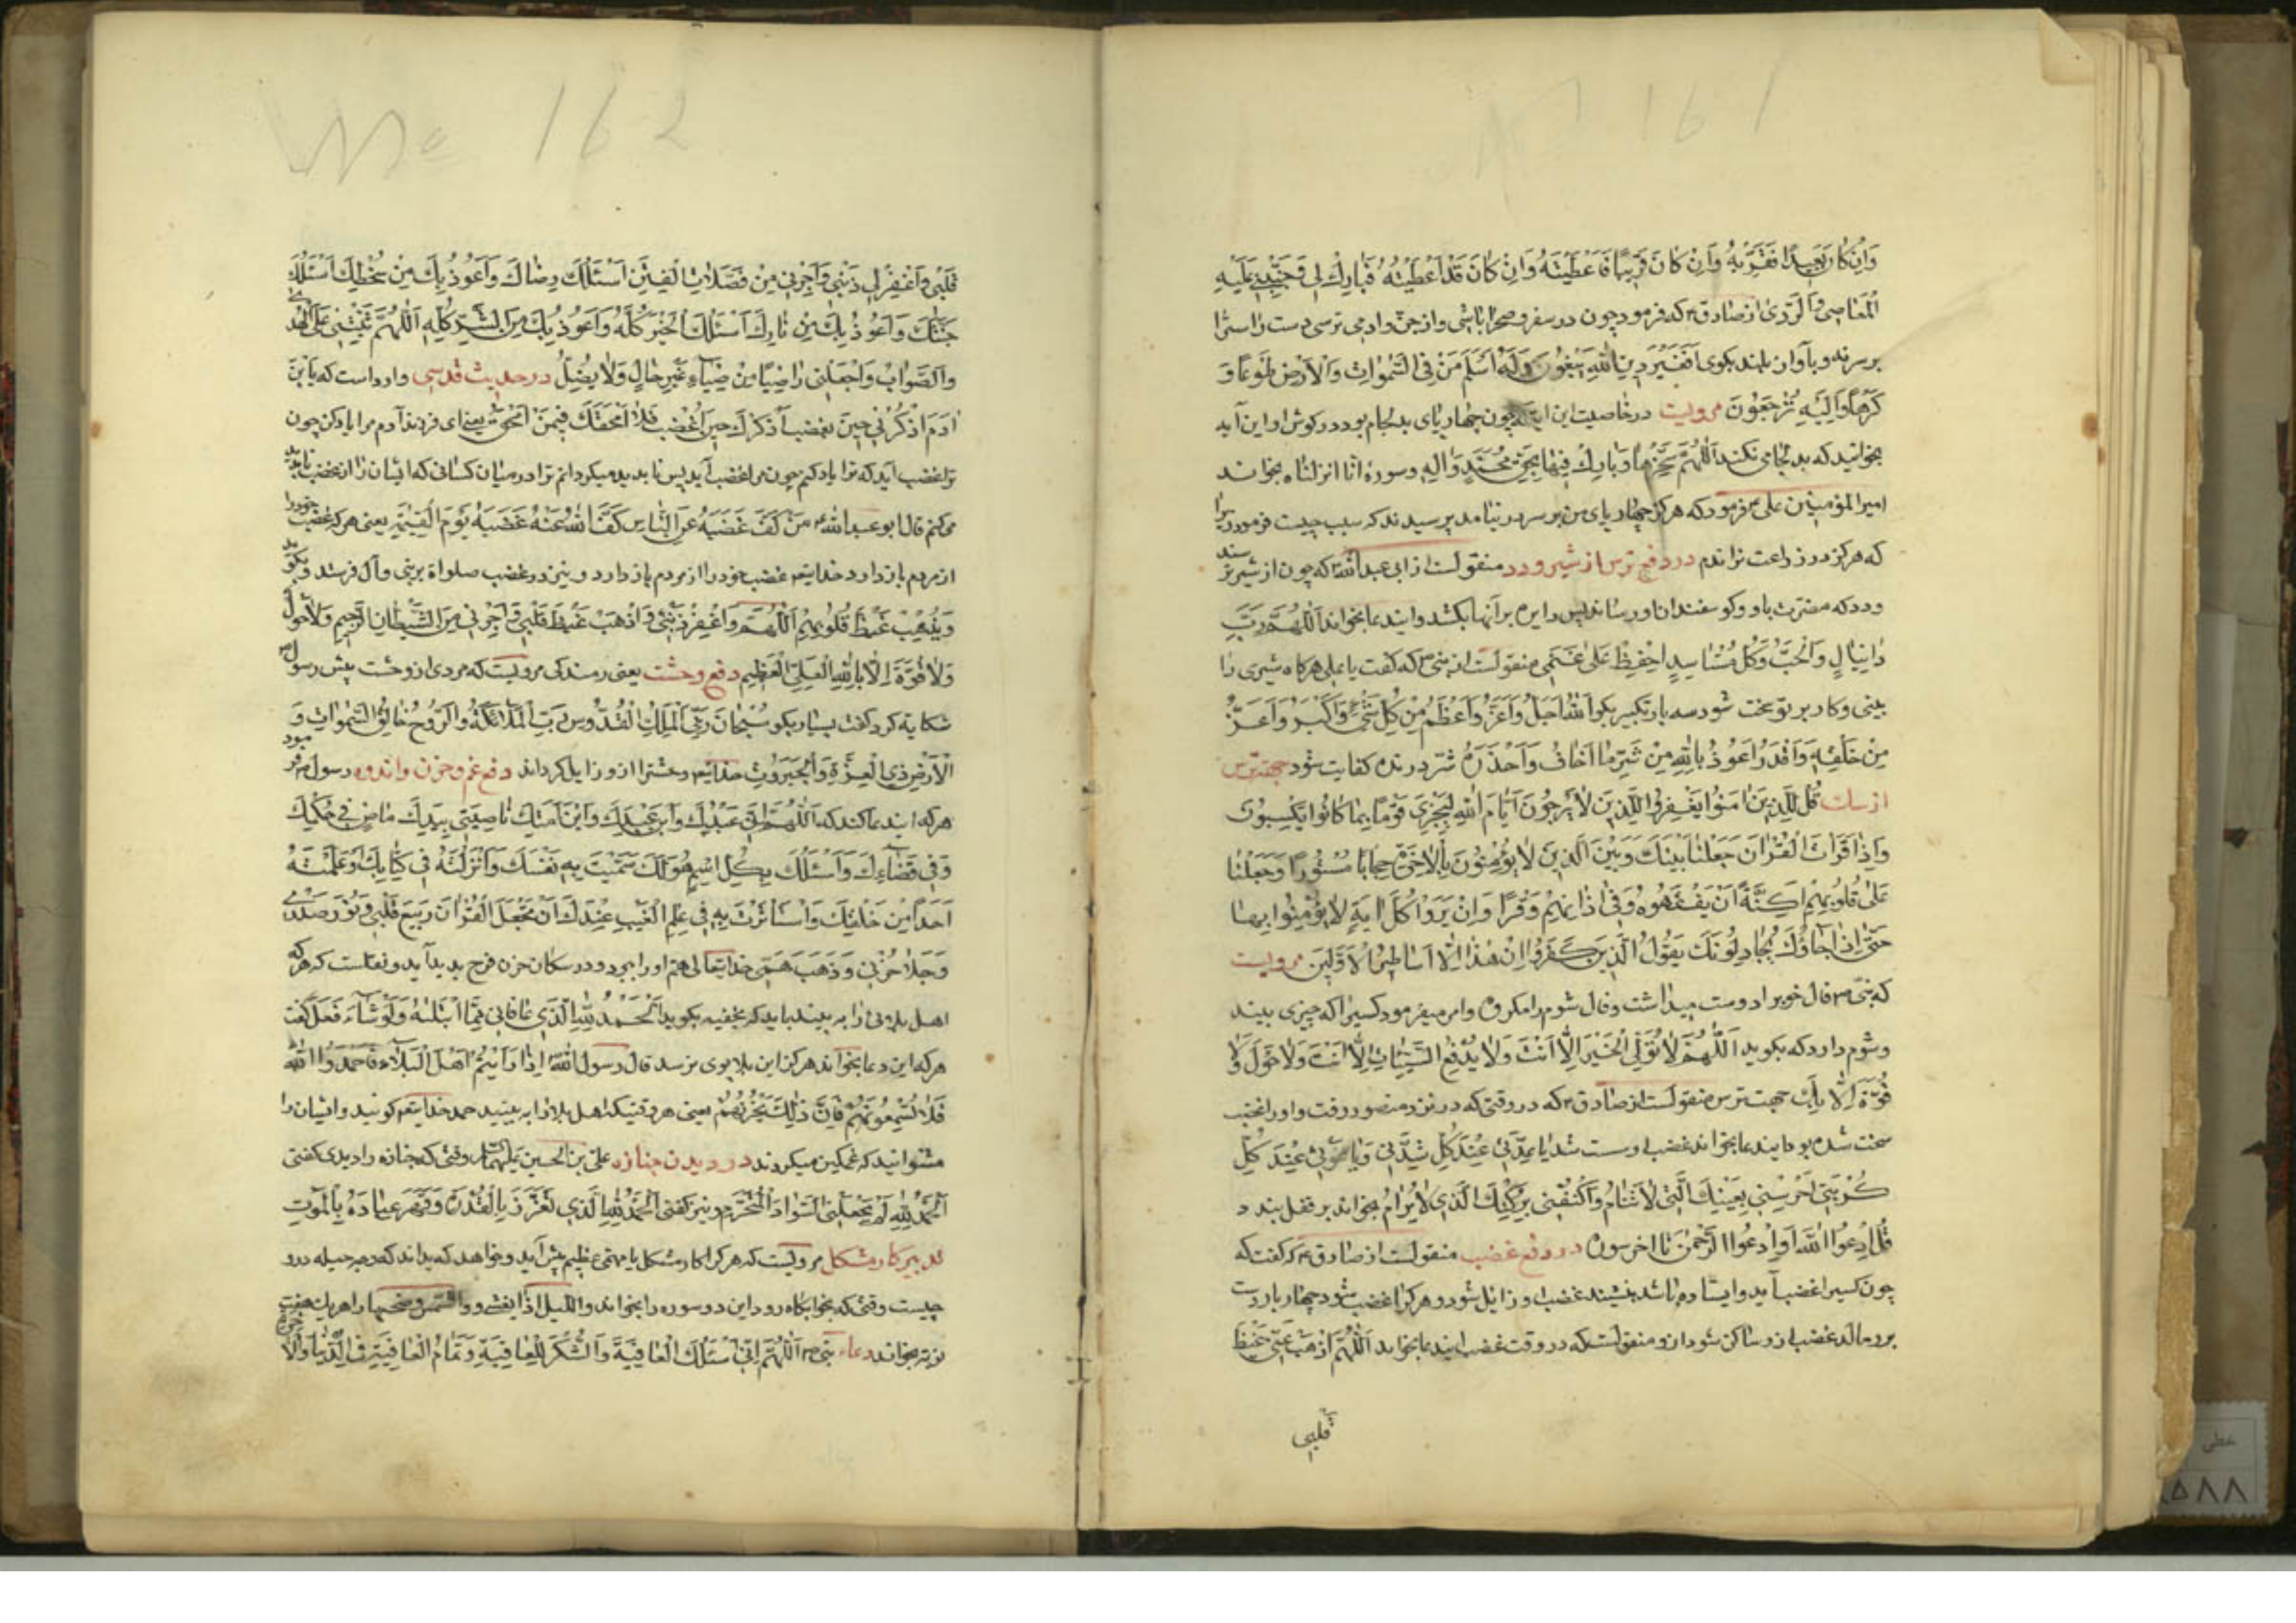 وَاِنْ كانَ بَعيدًا فَقَرِّبْهُ وَاِنْ كانَ قَريبًا فَاَعْطَيْتَهُ وَاِنْ كانَ قَدْ اَعْطَيْتَهُ فَبارِكْ لي وَجَنِّبْني عَلَيْهِ
الْمَعاصِيَ وَالرَّدى از صادق ع که فرمود چون در سفر و صحرا باشی و از جن و ادمی ترسی دست راست را
بر سر نه و باواز بلند بکوی اَفَغَيْرَ دينِ اللهِ يَبْغُونَ وَلَهُ اَسْلَمَ مَنْ فِي السَّمواتِ وَالْاَرْضِ طَوْعًا وَ
كَرْهًا وَاِلَيْهِ تُرْجَعُونَ مرویست در خاصیت این ایة که چون چهارپای بدلجام بود در کوش او این آیه
بخوانید که بدلجامی نکند اَللّهُمَّ سَخِّرْها وَبارِكْ فيها بِحَقِّ مُحَمَّدٍ وَآلِهِ وسوره انا انزلناه بخواند
امیرالمؤمنین علی ع فرمود که هرکز چهارپای من بسر در نیامد پرسیدند که سبب چیست فرمود زیرا
که هرکز در زراعت نراندم در دفع ترس از شیر و دد منقولست از ابی عبدالله ع که چون از شیر ترسند
و دد که مضرت باو و کوسفندان او رساند پس دایره بر آنها بکشد و ایندعا بخواند اَللّهُمَّ رَبَّ
دانِيالَ وَالْجُبِّ وَكُلِّ مُسْتَأْسِدٍ احْفَظْ عَلى غَنَمي منقولست از نبی ص که کفت یا علی هرکاه شیری را
بینی و کار بر تو سخت شود سه بار تکبیر بکو اَللهُ اَجَلُّ وَاَعَزُّ وَاَعْظَمُ مِنْ كُلِّ شَيْءٍ وَاَكْبَرُ وَاَعَزُّ
مِنْ خَلْقِهِ وَاَقْدَرُ اَعُوذُ بِاللهِ مِنْ شَرِّ ما اَخافُ وَاَحْذَرُ شر درنده کفایت شود جهت ترس
از سك قُلْ لِلَّذينَ امَنُوا يَغْفِرُوا لِلَّذينَ لا يَرْجُونَ اَيّامَ اللهِ لِيَجْزِيَ قَوْمًا بِما كانُوا يَكْسِبُونَ
وَاِذا قَرَأْتَ الْقُرْانَ جَعَلْنا بَيْنَكَ وَبَيْنَ الَّذينَ لا يُؤْمِنُونَ بِالْاخِرَةِ حِجابًا مَسْتُورًا وَجَعَلْنا
عَلى قُلُوبِهِمْ اَكِنَّةً اَنْ يَفْقَهُوهُ وَفي اذانِهِمْ وَقْرًا وَاِنْ يَرَوْا كُلَّ ايَةٍ لا يُؤْمِنُوا بِها
حَتّى اِذا جاؤُكَ يُجادِلُونَكَ يَقُولُ الَّذينَ كَفَرُوا اِنْ هذا اِلّا اَساطيرُ الْاَوَّلينَ مرویست
که نبی ص فال خوب را دوست میداشت و فال شوم را مکروه و امر میفرمود کسیرا که چیزی بیند
و شوم دارد که بکوید اَللّهُمَّ لا يُؤْتِي الْخَيْرَ اِلّا اَنْتَ وَلا يَدْفَعُ السَّيِّئاتِ اِلّا اَنْتَ وَلا حَوْلَ وَلا
قُوَّةَ اِلّا بِكَ جهت ترس منقولست از صادق ع که در وقتی که در نزد منصور رفت و او را غضب
سخت شده بود ایندعا بخواند غضب او سست شد يا عُدَّتي عِنْدَ كُلِّ شِدَّتي وَيا غَوْثي عِنْدَ كُلِّ
كُرْبَتي احْرُسْني بِعَيْنِكَ الَّتي لا تَنامُ وَاكْنُفْني بِرُكْنِكَ الَّذي لا يُرامُ بخواند بر قفل بند د
قُلِ ادْعُوا اللهَ اَوِ ادْعُوا الرَّحْمنَ تا اخر سوره در دفع غضب منقولست از صادق ع که کفت که
چون کسیرا غضب آید و ایستاده باشد بنشیند غضب او زایل شود و هرکرا غضب شود چهار بار دست
بر رو مالد غضب او زو ساکن شود از و منقولست که در وقت غضب ایندعا بخواند اَللّهُمَّ اذْهَبْ عَنّي غَيْظَ
قلبی
قَلْبي وَاغْفِرْ لي ذَنْبي وَاَجِرْني مِنْ مُضِلّاتِ الْفِتَنِ اَسْئَلُكَ رِضاكَ وَاَعُوذُ بِكَ مِنْ سُخْطِكَ اَسْئَلُكَ
جَنَّتَكَ وَاَعُوذُ بِكَ مِنْ نارِكَ اَسْئَلُكَ الْخَيْرَ كُلَّهُ وَاَعُوذُ بِكَ مِنَ الشَّرِّ كُلِّهِ اَللّهُمَّ ثَبِّتْني عَلَى الْهُدى
وَالصَّوابِ وَاجْعَلْني راضِيًا مَرْضِيًّا غَيْرَ ضالٍّ وَلا مُضِلٍّ در حدیث قدسی وارد است که یَا بْنَ
ادَمَ اذْكُرْني حينَ تَغْضَبُ اَذْكُرْكَ حينَ اَغْضَبُ فَلا اَمْحَقُكَ فيمَنْ اَمْحَقُ یعنی ای فرزند آدم مرا یاد کن چون
ترا غضب آید که ترا یاد کنم چون مرا غضب آید پس ناپدید میکردانم ترا در میان کسانی که ایشان را از غضب ناپدید
میکنم قال ابو عبدالله ع مَنْ كَفَّ غَضَبَهُ عَنِ النّاسِ كَفَّ اللهُ عَنْهُ غَضَبَهُ يَوْمَ الْقِيمَةِ یعنی هرکه غضب خود را
از مردم باز دارد خدایتعـ غضب خود را از مردم باز دارد و نیز در غضب صلواة بر نبی و آل فرستد و بکوید
وَيُذْهِبْ غَيْظَ قُلُوبِهِمْ اَللّهُمَّ وَاغْفِرْ ذَنْبي وَاذْهَبْ غَيْظَ قَلْبي وَاَجِرْني مِنَ الشَّيْطانِ الرَّجيمِ وَلا حَوْلَ
وَلا قُوَّةَ اِلّا بِاللهِ الْعَلِيِّ الْعَظيمِ دفع وحشت یعنی رمندکی مرویست که مردی از وحشت پیش رسول ص
شکایه کرد کفت بسیار بکو سُبْحانَ رَبِّيَ الْمَلِكِ الْقُدُّوسِ رَبِّ الْمَلائِكَةِ وَالرُّوحِ خالِقِ السَّمواتِ وَ
الْاَرْضِ ذِي الْعِزَّةِ وَالْجَبَرُوتِ خدایتعـ وحشترا ازو زایل کرداند دفع غم و حزن و اندوه رسول ص فرمود
هرکه ایندعا کند که اَللّهُمَّ اِنّي عَبْدُكَ وَابْنُ عَبْدِكَ وَابْنُ اَمَتِكَ ناصِيَتي بِيَدِكَ ماضٍ فِيَّ حُكْمُكَ
وَفي قَضاءِكَ وَاَسْئَلُكَ بِكُلِّ اسْمٍ هُوَ لَكَ سَمَّيْتَ بِهِ نَفْسَكَ وَاَنْزَلْتَهُ في كِتابِكَ اَوْ عَلَّمْتَهُ
اَحَدًا مِنْ خَلْقِكَ وَاسْتَأْثَرْتَ بِهِ في عِلْمِ الْغَيْبِ عِنْدَكَ اَنْ تَجْعَلَ الْقُرْانَ رَبيعَ قَلْبي وَنُورَ صَدْري
وَجَلاءَ حُزْني وَذَهابَ هَمّي خدایتعالی هم او را ببرد و در مکان حزن فرح پدید آید و نقلست که هرکه
اهل بلائی را به بیند باید که بخفیه بکوید اَلْحَمْدُ لِلّهِ الَّذي عافاني مِمَّا ابْتَلاهُ وَلَوْ شاءَ فَعَلَ کفت
هرکه این دعا بخواند هرکز این بلا بوی نرسد قال رسول الله ص اِذا رَاَيْتُمْ اَهْلَ الْبَلاءِ فَاحْمَدُوا اللهَ
فَلا تُسْمِعُوهُمْ فَاِنَّ ذلِكَ يَحْزُنُهُمْ یعنی هر وقتیکه اهل بلا را به بینید حمد خدایتعـ کویید و ایشان را
مشنوانید که غمکین میکردند در دیدن جنازه علی بن الحسین علیهما السلام وقتی که جنازه را دیدی کفتی
اَلْحَمْدُ لِلّهِ لَمْ يَجْعَلْني السَّوادَ الْمُخْتَرَمِ و نیز کفتی اَلْحَمْدُ لِلّهِ الَّذي تَعَزَّزَ بِالْقُدْرَةِ وَقَهَرَ عِبادَهُ بِالْمَوْتِ
تدبیر کار مشکل مرویست که هرکرا کار مشکل یا مهمی عظیم پیش آید و خواهد که بداند که وجه حیله درو
چیست وقتی که بخوابکاه رود این دو سوره را بخواند واللیل اذا یغشی و والشمس وضحیها را هر یك هفت
نوبت بخواند دعاء نبی ص اَللّهُمَّ اِنّي اَسْئَلُكَ الْعافِيَةَ وَالشُّكْرَ لِلْعافِيَةِ وَتَمامَ الْعافِيَةِ فِي الدُّنْيا وَالْا
خرة
162
161
خطی